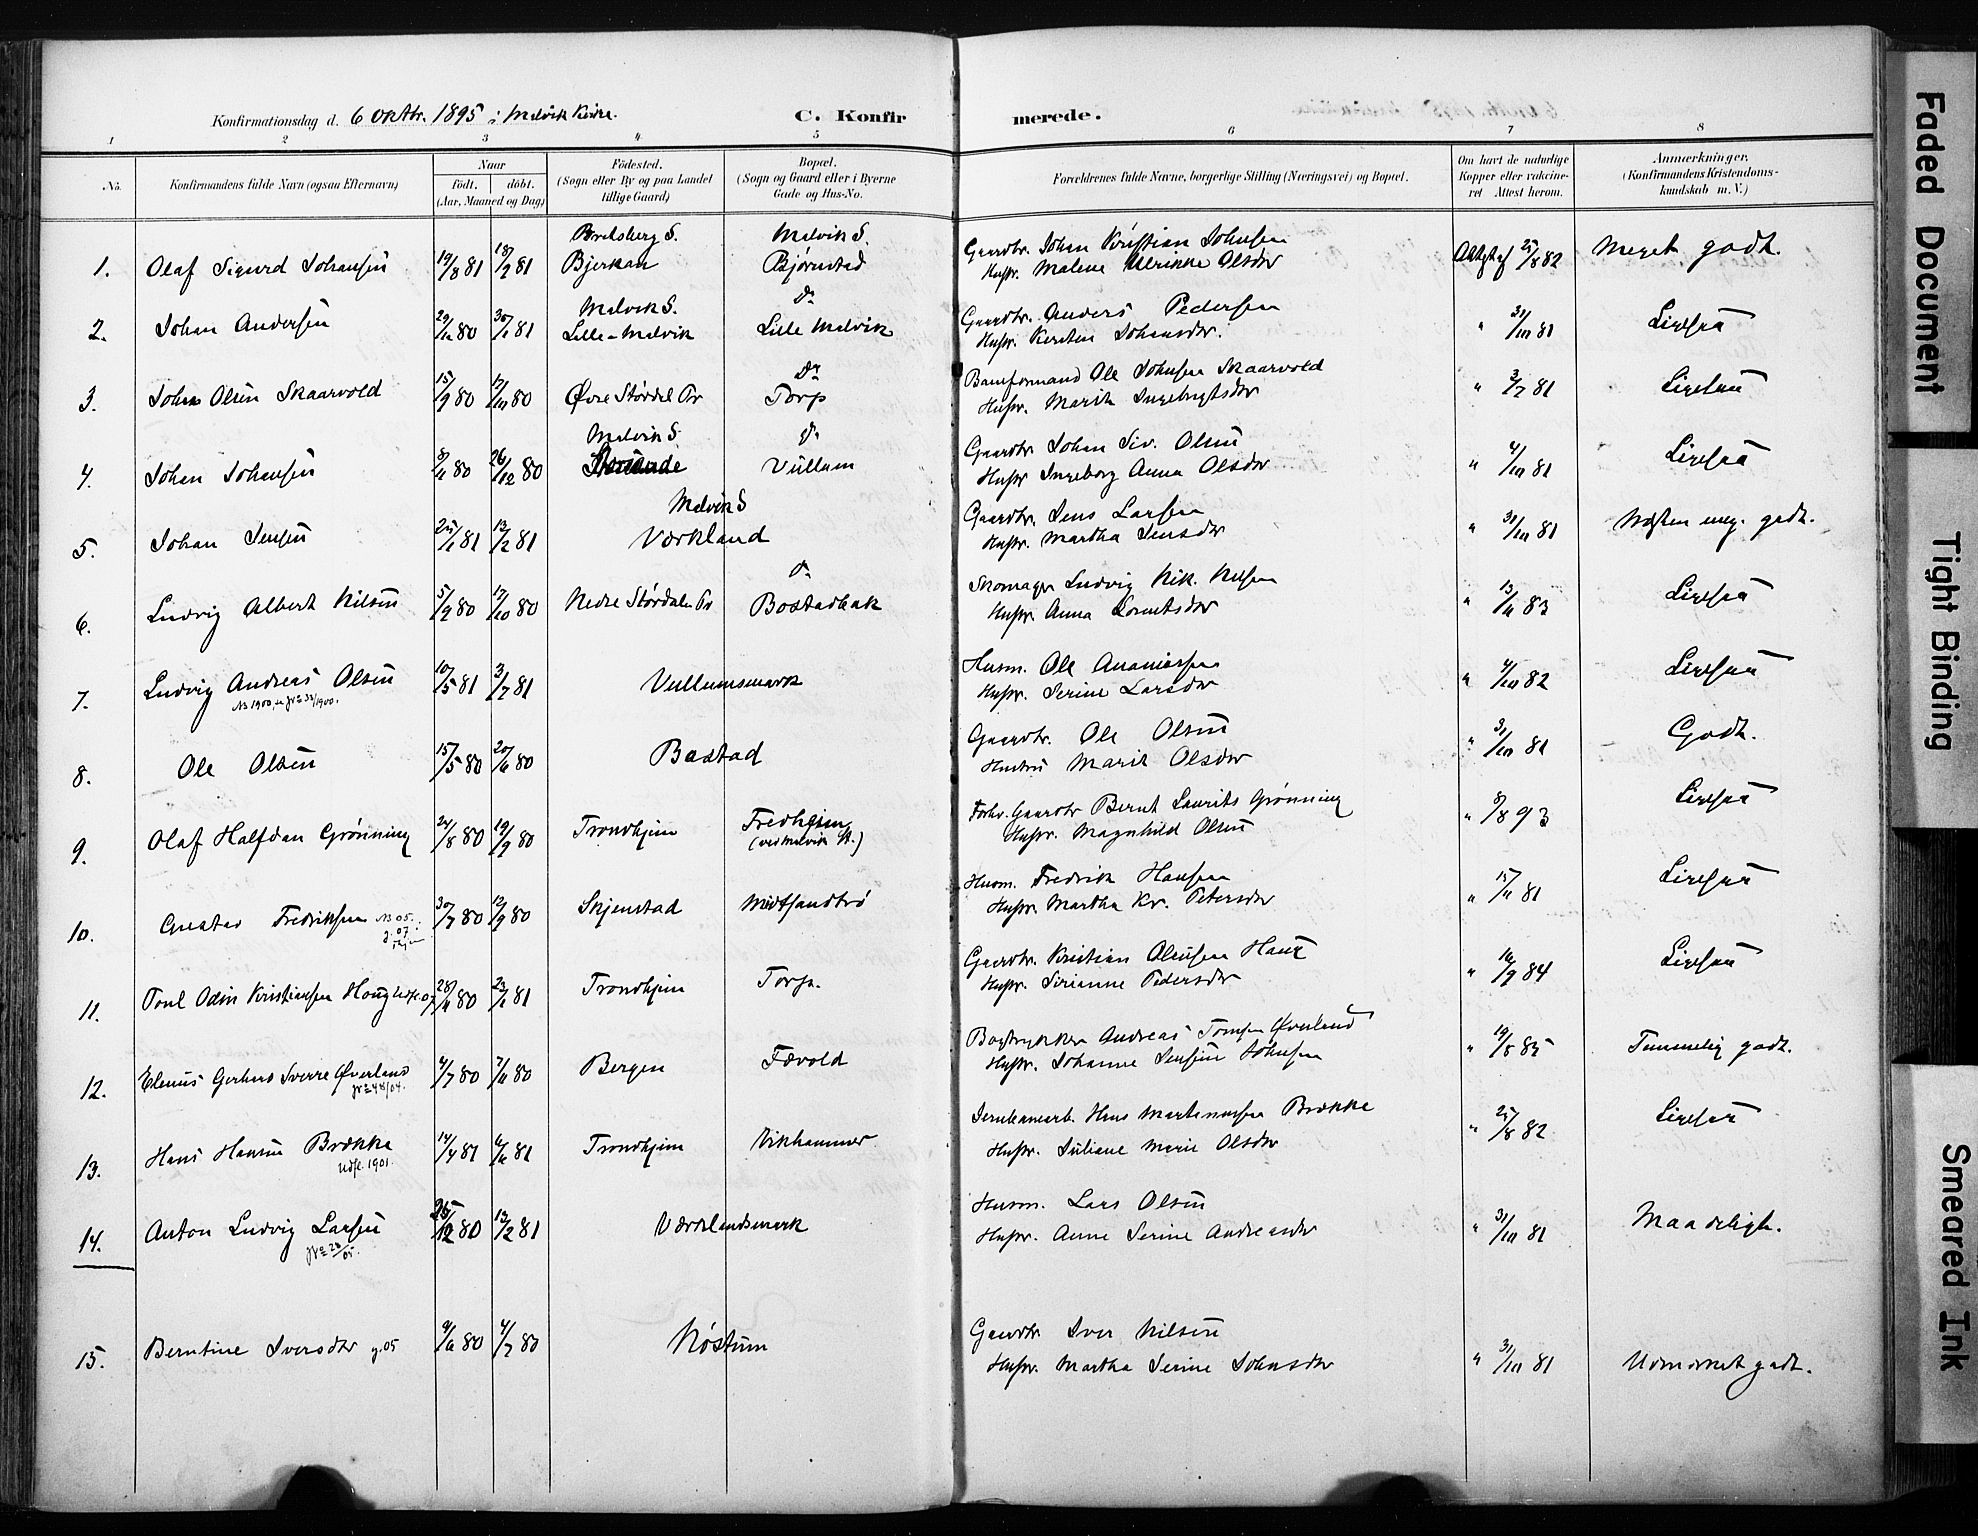 Konfirmationsdag d. 6 oktbr. 1895 i Malvik Kirke.
C. Konfirmerede.
1 2 3 4 5 6 7 8
No.
Konfirmandens fulde Navn (ogsaa Efternavn)
Naar
födt. döbt.
(Aar, Maaned og Dag)
Födested.
(Sogn eller By og paa Landet
tillige Gaard)
Bopæl.
(Sogn og Gaard eller i Byerne
Gade og Hus-No.
Forældrenes fulde Navne, borgerlige Stilling (Næringsvei) og Bopæl.
Om havt de naturlige
Kopper eller vakcine-
ret Attest herom.
Anmærkninger.
(Konfirmandens Kristendoms-
kundskab m. V.)
1. Olaf Sigurd Johansen 81 81 Bratsberg S. Bjerkan Malvik S. Bjørnstad
Gaardbr. Johan Kristian Johnsen
Hustr. Malene Ulrikke Olsdtr 25/8 82 Meget godt.
2. Johan Andersen 29/12 80 30/1 81 Malvik S. Lille-Malvik do Lille Malvik
Gaardbr. Anders Pedersen
Hustr. Kirsten Johansdtr. " 31/10 81 Ligesaa
3. Johan Olsen Skaarvold 15/9 80 17/10 80 Øvre Størdal Pr do Torp
Baneformand Ole Johnsen Skaarvold
Hustr. Marit Ingebrigtsdtr " 3/7 81 Ligesaa
4. Johan Johansen 8/11 80 26/12 80 Malvik S. do Vullum
Gaardbr. Johan Siv. Olsen
Hustr Ingeborg Anna Olsdtr " 4/10 81 Ligesaa
5. Johan Jensen 25/1 81 13/2 81 Malvik S Værkland
Gaardbr. Jens Larsen
Hustr. Martha Jensdtr " 31/10 81 Næsten meg. godt.
6. Ludvig Albert Nilsen 5/9 80 17/10 80 Nedre Størdalen Pr do Bostadbak
Skomager Ludvig Nik. Nilsen
Hustr. Anna Lorntsdtr " 13/11 83 Ligesaa
7. Ludvig Andreas Olsen 10/5 81 3/7 81 Vullumsmark
Husm. Ole Ananiassen
Hustr. Serine Larsdtr " 4/10 82 Ligesaa
8. Ole Olsen 15/5 80 20/6 80 Bostad
Gaardbr. Ole Olsen
Hustru Marit Olsdtr " 31/10 81 Godt.
9. Olaf Halfdan Grønning 24/8 80 19/9 80 Trondhjem Fredheim
(ved Malvik St.)
Forhv. Gaardbr Bernt Laurits Grønning
Hustr. Magnhild Olsen " 8/8 93 Ligesaa
10. Gustav Fredriksen 30/7 80 12/9 80 Skjenstad Midtsandtrø
Husm. Fredrik Hansen
Hustr. Martha Kr. Petersdtr " 15/11 81 Ligesaa
11. Poul Odin Kristiansen Houg 28/11 80 23/1 81 Trondhjem Torp.
Gaardbr. Kristian Olausen Haug
Hustr. Serianne Pedersdtr " 16/9 84 Ligesaa
12. Elenus Gerhard Sverre Øverland 4/7 80 7/11 80 Bergen Fævold
Bogtrykker Andreas Øverland
Hustr. Johanne Jensine Johnsen " 19/8 85 Temmelig godt.
13. Hans Hansen Brækka 81 81 Trondhjem Vikhammer
Udfl. 1901.
Jernbanearb. Hans Martinussen Brække
Hustr. Juliane Marie Olsdtr " 25/8 82 Ligesaa
14. Anton Ludvig Larsen 12 80 13/2 81 Værklandsmark
Husm. Lars Olsen
Hustr. Anne Serine Andreasdtr " 31/10 81 Maadeligt.
15. Berntine Iversdtr g. 05 9/6 80 4/7 80 Røstum
Gaardbr Iver Nilsen
Hustr. Martha Serine Johnsdtr " 31/10 81 Udmærket godt.
Faded Document
Tight Binding
Smeared Ink